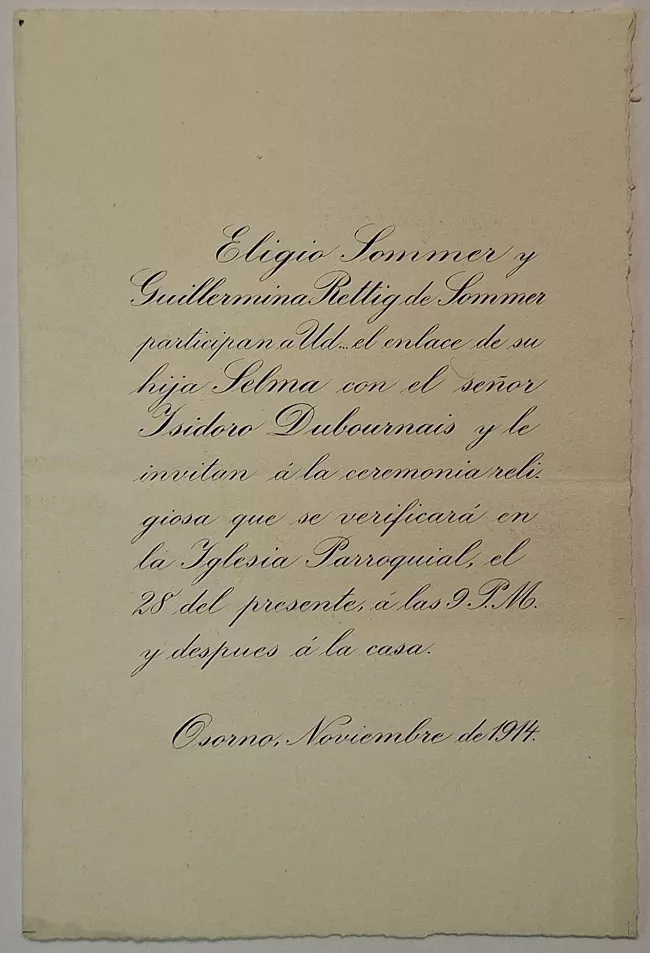 Eligio Sommer y
Guillermina Rettig de Sommer
participan a Ud... el enlace de su
hija Selma con el señor
Isidoro Dubournais y le
invitan á la ceremonia reli-
giosa que se verificará en
la Iglesia Parroquial, el
28 del presente, á las 9 P.M.
y despues á la casa.
Osorno, Noviembre de 1914.